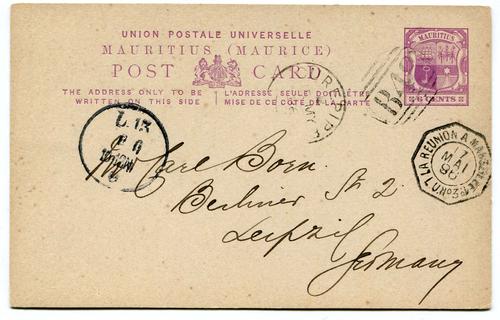 UNION POSTALE UNIVERSELLE
MAURITIUS (MAURICE)
POST CARD
THE ADDRESS ONLY TO BE WRITTEN ON THIS SIDE
L'ADRESSE SEULE DOIT ÊTRE MISE DE CE CÔTÉ DE LA CARTE
MAURITIUS
6 CENTS
B A
L.13
LA REUNION A MARSEILLE
17
MAI
96
L.V. N° 3
Carl Born.
Berliner St 2
Leipzig
Germany